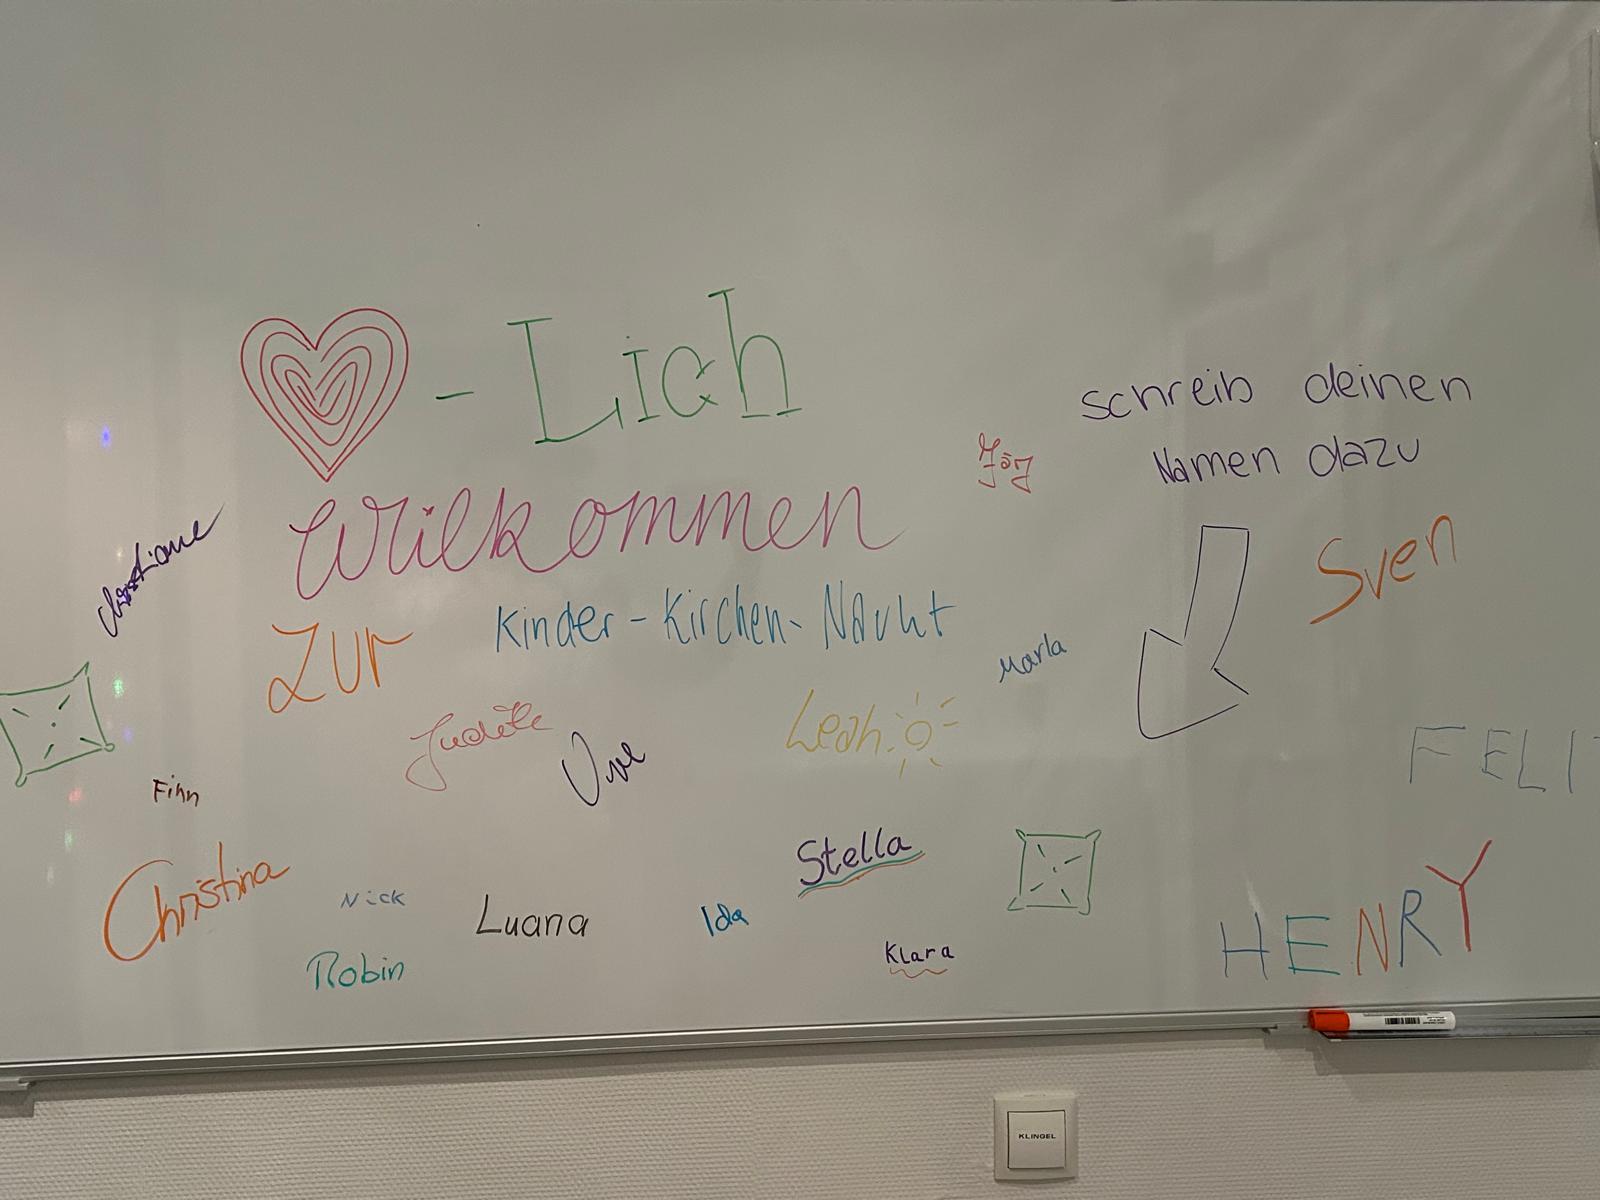 -Lich
Willkommen
zur Kinder-Kirchen-Nacht
schreib deinen
Namen dazu
Sven
Christiane
Marla
Judith
Uwe
Leah.
FELI
Finn
Stella
Christina
Nick
Luana
Ida
HENRY
Klara
Robin
KLINGEL